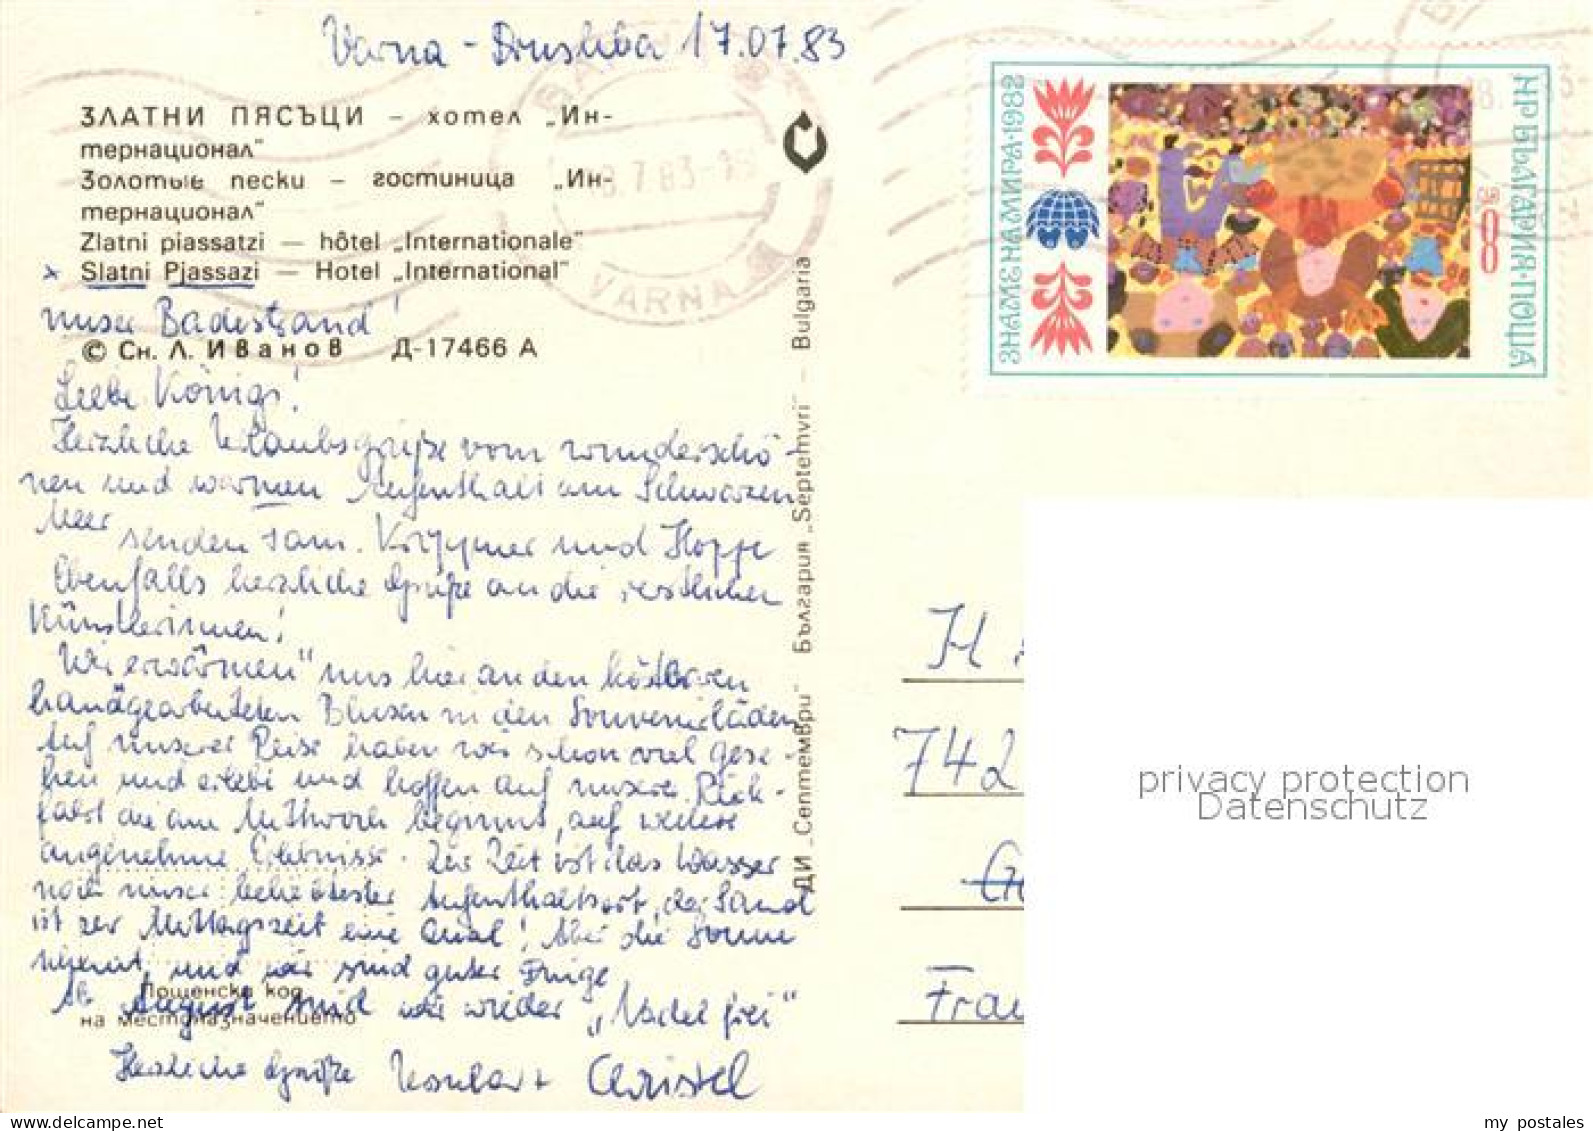 Varna - Drushba 17.07.83
ЗЛАТНИ ПЯСЪЦИ – хотел „Ин-
тернационал"
Золотые пески – гостиница „Ин-
тернационал"
Zlatni piassatzi — hôtel „Internationale"
x Slatni Pjassazi — Hotel „International"
unser Badestrand!
© Сн. Л. Иванов Д-17466 А
Liebe Königs!
Herzliche Urlaubsgrüße vom wunderschö-
nen und warmen Aufenthalt am Schwarzen
Meer senden Fam. und Hoppe
Ebenfalls herzliche Grüße an die restlichen
Künstlerinnen!
Wir erwärmen" uns hier an den
handgearbeiteten Blusen in den Souvenirläden
Auf unserer Reise haben wir schon viel gese-
hen und erlebt und hoffen auf unserer Rück-
fahrt die am Mittwoch beginnt, auf weitere
angenehme Erlebnisse. Zur Zeit ist das Wasser
noch unser beliebtester Aufenthaltsort, der Sand
ist zur Mittagszeit eine Qual! Aber die Sonne
und wir sind guter Dinge
Пощенски код
Ab August sind wir wieder „Nadel frei"
на местоназначението
Herzliche Grüße Christel
ДИ „Септември" България „Septemvri" – Bulgaria
VARNA
8.7.83
ЗНАМЕ НА МИРА·1982
НР БЪЛГАРИЯ·ПОЩА
H
742
Ge
Frau
privacy protection
Datenschutz
my postales